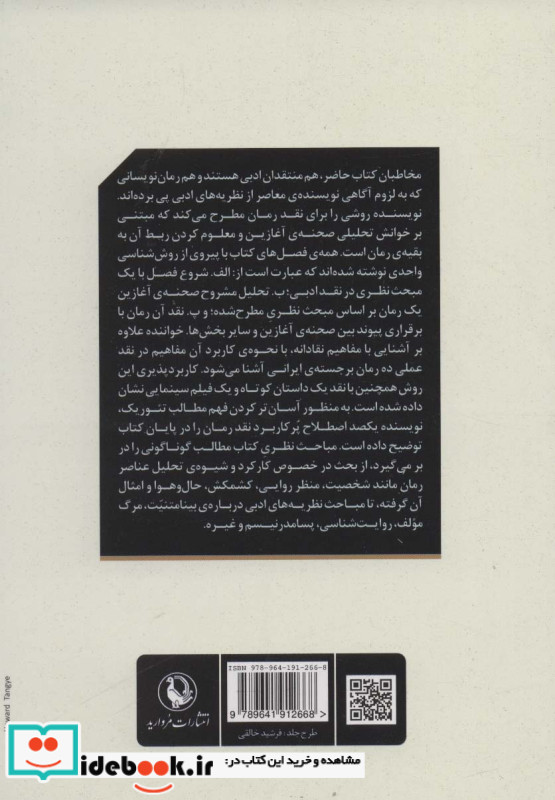 مخاطبان کتاب حاضر، هم منتقدان ادبی هستند و هم رمان‌نویسانی
که به لزوم آگاهی نویسنده‌ی معاصر از نظریه‌های ادبی پی برده‌اند.
نویسنده روشی را برای نقد رمان مطرح می‌کند که مبتنی
بر خوانش تحلیلی صحنه‌ی آغازین و معلوم کردن ربط آن به
بقیه‌ی رمان است. همه‌ی فصل‌های کتاب با پیروی از روش‌شناسی
واحدی نوشته شده‌اند که عبارت است از: الف. شروع فصل با یک
مبحث نظری در نقد ادبی؛ ب. تحلیل مشروح صحنه‌ی آغازین
یک رمان بر اساس مبحث نظریِ مطرح‌شده؛ و پ. نقد آن رمان با
برقراری پیوند بین صحنه‌ی آغازین و سایر بخش‌ها. خواننده علاوه
بر آشنایی با مفاهیم نقادانه، با نحوه‌ی کاربرد آن مفاهیم در نقد
عملی ده رمان برجسته‌ی ایرانی آشنا می‌شود. کاربردپذیری این
روش همچنین با نقد یک داستان کوتاه و یک فیلم سینمایی نشان
داده شده است. به منظور آسان‌تر کردن فهم مطالب تئوریک،
نویسنده یکصد اصطلاح پُرکاربرد نقد رمان را در پایان کتاب
توضیح داده است. مباحث نظریِ کتاب مطالب گوناگونی را در
بر می‌گیرد، از بحث در خصوص کارکرد و شیوه‌ی تحلیل عناصر
رمان مانند شخصیت، منظر روایی، کشمکش، حال‌وهوا و امثال
آن گرفته، تا مباحث نظریه‌های ادبی درباره‌ی بینامتنیّت، مرگ
مؤلف، روایت‌شناسی، پسامدرنیسم و غیره.
ISBN 978-964-191-266-8
9 789641 912668 >
انتشارات مروارید
طرح جلد: فرشید خالقی
Howard Tangye
مشاهده و خرید این کتاب در:
idebook.ir